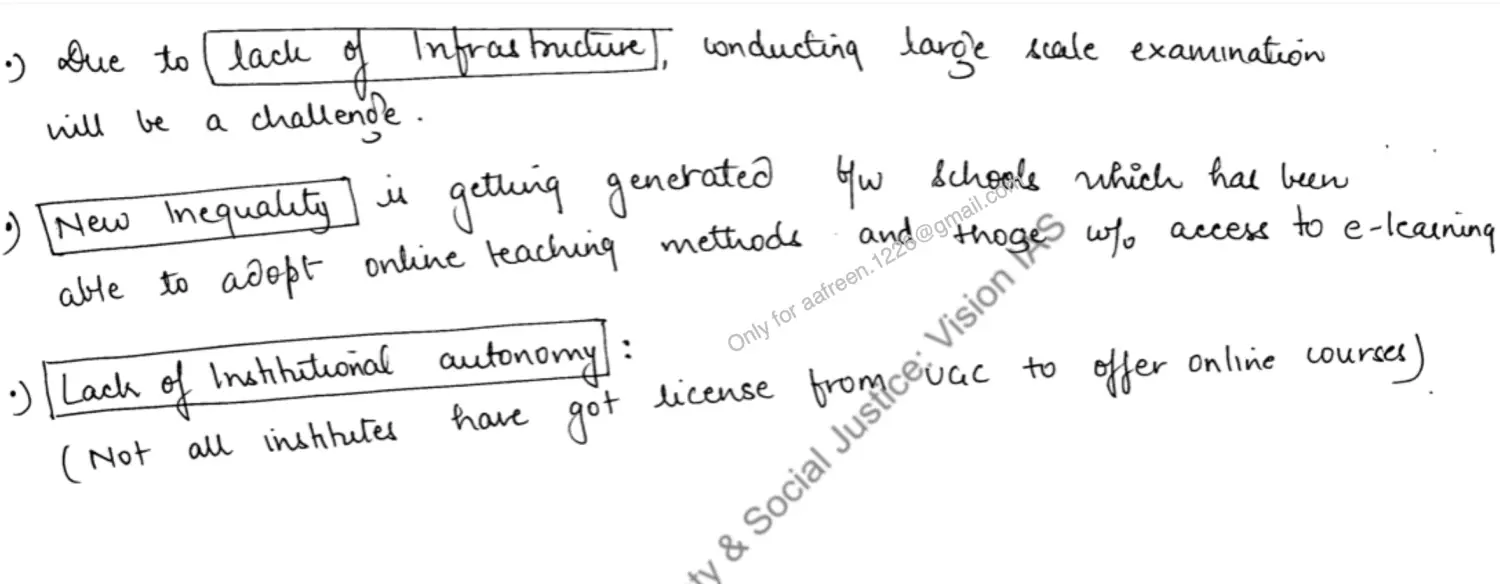 ·) Due to lack of Infrastructure, conducting large scale examination
will be a challenge.
·) New Inequality is getting generated b/w schools which has been
able to adopt online teaching methods and those w/o access to e-learning
·) Lack of Institutional autonomy :
(Not all institutes have got license from UGC to offer online courses).
Only for aafreen.1226@gmail.com
ty & Social Justice: Vision IAS